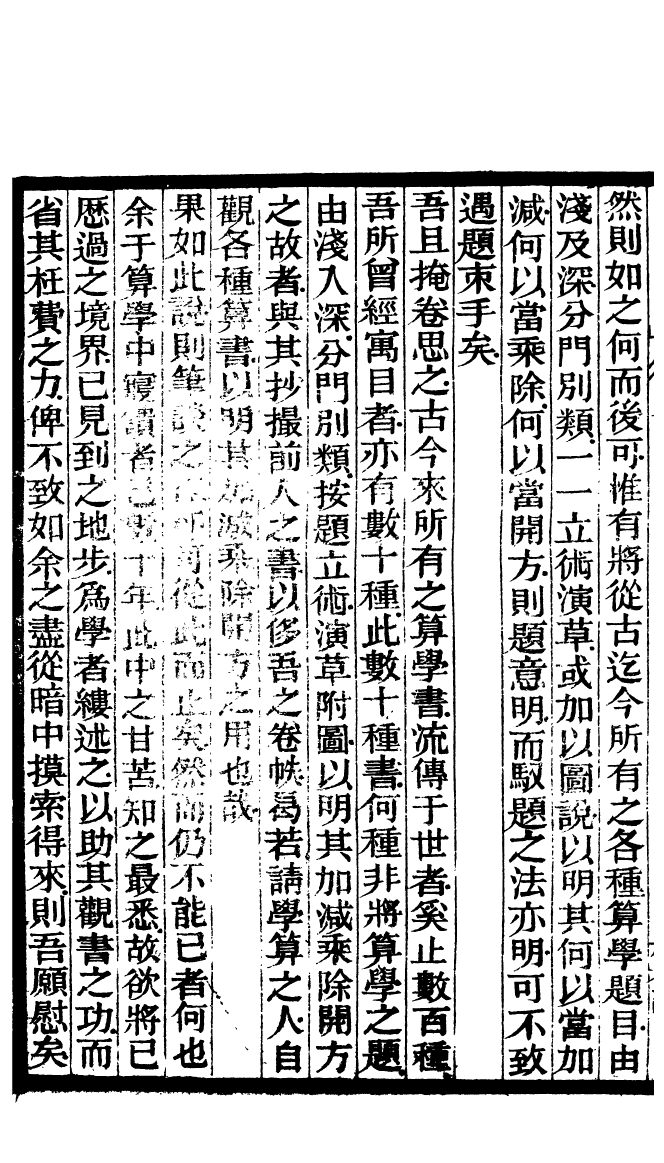 然則如之何而後可惟有將從古迄今所有之各種算學題目由
淺及深分門別類一一立術演草或加以圖說以明其何以當加
減何以當乘除何以當開方則題意明而馭題之法亦明可不致
遇題束手矣
吾且掩卷思之古今來所有之算學書流傳于世者奚止數百種
吾所曾經寓目者亦有數十種此數十種書何種非將算學之題
由淺入深分門別類按題立術演草附圖以明其加減乘除開方
之故者與其抄撮前人之書以侈吾之卷帙曷若請學算之人自
觀各種算書以明其加減乘除開方之用也哉
果如此說則筆談之從此而止矣然而仍不能已者何也
余于算學中寢饋者已數十年此中之甘苦知之最悉故欲將已
歷過之境界已見到之地步為學者縷述之以助其觀書之功而
省其枉費之力俾不致如余之盡從暗中摸索得來則吾願慰矣